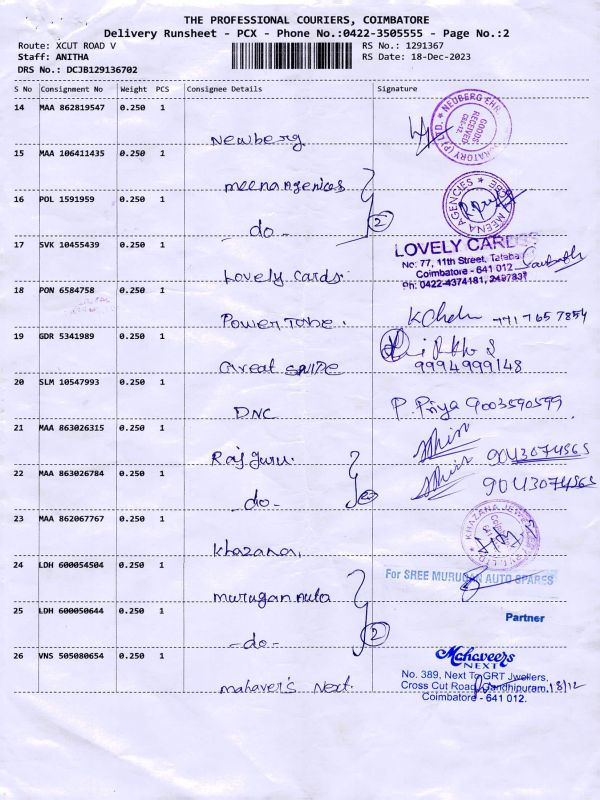 THE PROFESSIONAL COURIERS, COIMBATORE
Delivery Runsheet - PCX - Phone No.:0422-3505555 - Page No.:2
Route: XCUT ROAD V
RS No.: 1291367
Staff: ANITHA
RS Date: 18-Dec-2023
DRS No.: DCJB129136702
S No Consignment No Weight PCS Consignee Details Signature
14 MAA 862819547 0.250 1
Newberg
NEUBERG EHR
GOODS RECEIVED
15 MAA 106411435 0.250 1
meena agencies
16 POL 1591959 0.250 1
MEENA AGENCIES
- do - 2
17 SVK 10455439 0.250 1
LOVELY CARDS
No: 77, 11th Street, Tatabad
Coimbatore - 641 012
Ph: 0422-4374181,
Lovely Cards
18 PON 6584758 0.250 1
Power Tobe. 7717657854
19 GDR 5341989 0.250 1
Great
9994999148
20 SLM 10547993 0.250 1
DNC P. Priya 9003590599
21 MAA 863026315 0.250 1
Rajguru. 9043074565
22 MAA 863026784 0.250 1
- do - 2 9043074565
23 MAA 862067767 0.250 1
Khazana,
KHAZANA JEWE
24 LDH 600054504 0.250 1
For SREE MURUGAN AUTO SPARES
murugan Auto
25 LDH 600050644 0.250 1
Partner
- do - 2
26 VNS 505080654 0.250 1
Mahaveers
NEXT
No. 389, Next To GRT Jwellers,
Cross Cut Road, Gandhipuram, 18/12
Coimbatore - 641 012.
mahaver's Next.